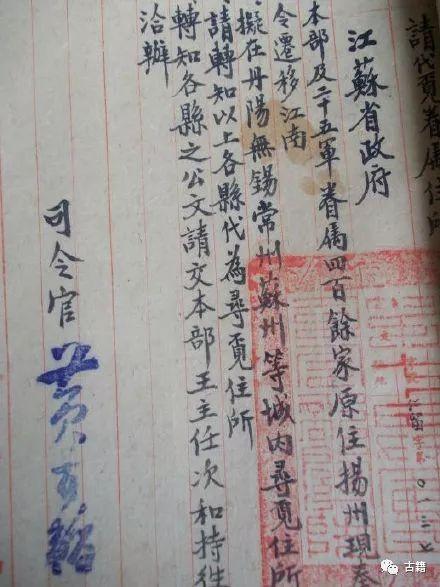 請代覓眷属住所
江蘇省政府
本部及二十五軍眷属四百餘家原住揚州現奉
令遷移江南
擬在丹陽無錫常州蘇州等城内尋覓住所
請轉知以上各縣代為尋覓住所
轉知各縣之公文請交本部王主任次和持往
洽辦
司令官 黃百韜
〇一三七
古籍